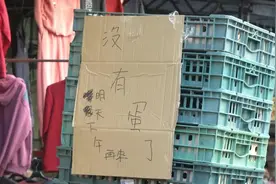 沒有蛋了
明天下午再來